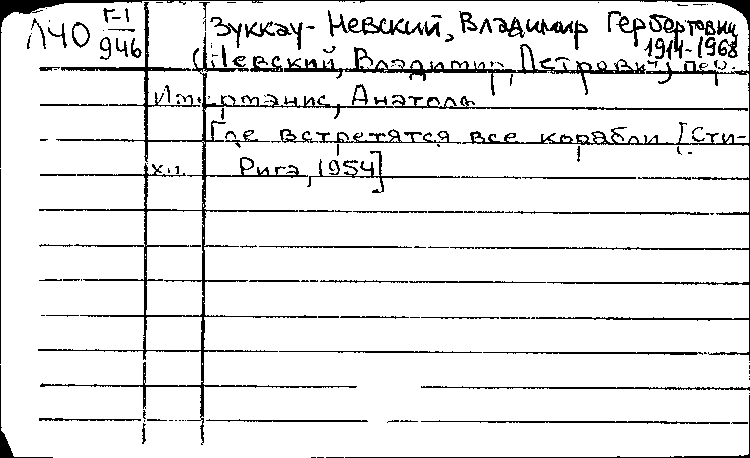 Л40 Г-1/946 Зуккау-Невский, Владимир Гербертович
1914-1968
(Невский, Владимир Петрович) пер.
Имерманис, Анатоль
Где встретятся все корабли [Сти-
хи. Рига, 1954]